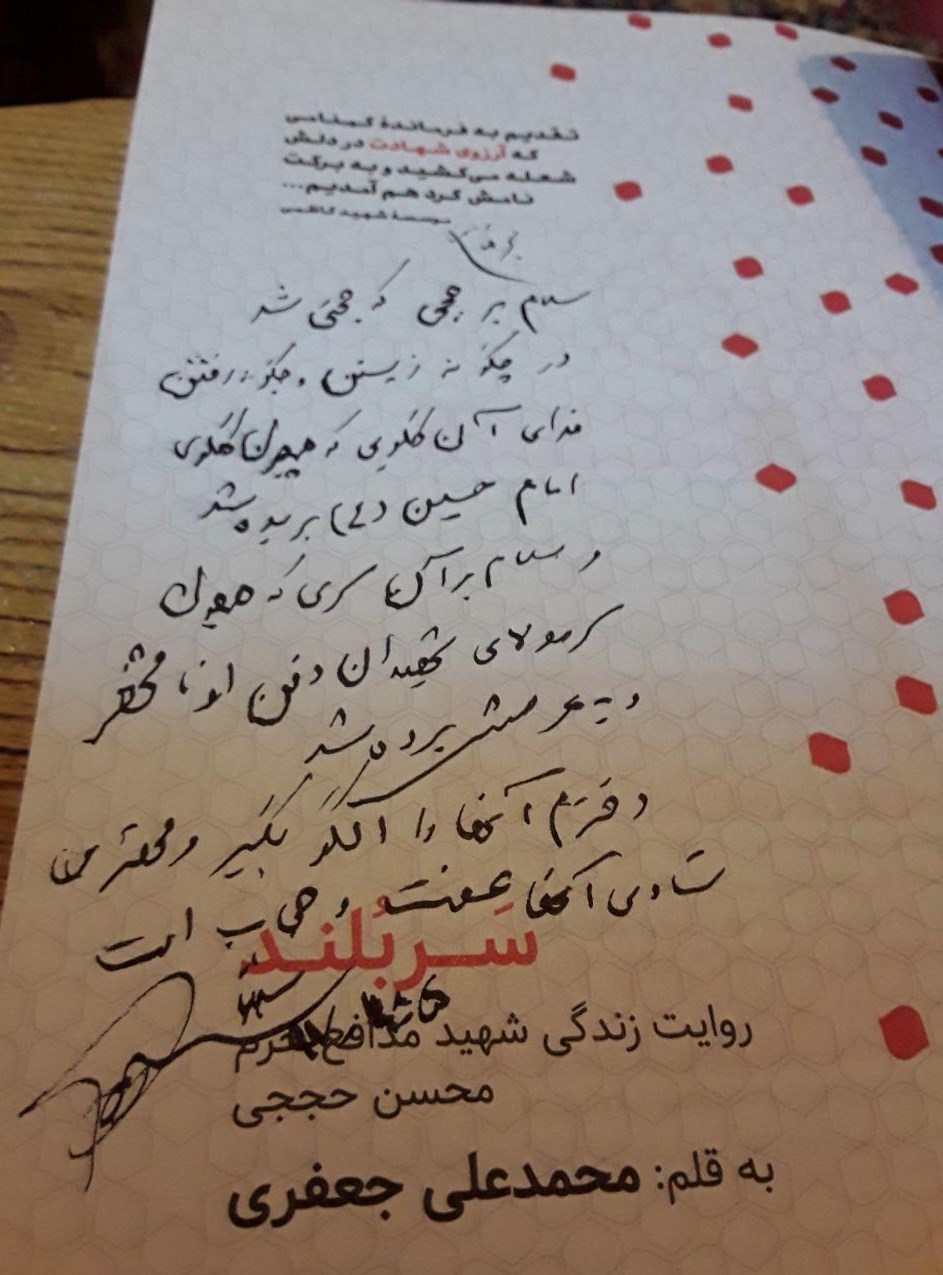 تقدیم به فرماندهٔ گمنامی
که آرزوی شهادت در دلش
شعله می‌کشید و به برکت
نامش گرد هم آمدیم...
موسسهٔ شهید کاظمی
سلام بر حججی که حجتی شد
در چگونه زیستن و چگونه رفتن
فدای آن گلویی که همچون گلوی
امام حسین (ع) بریده شد
و سلام بر آن سری که همچون
سر مولای شهیدان دفن او نا مشخص
و به عرش برده شد
دخترم آنها را الگو بگیر و مهمترین
آنها عفت و حجاب است
سربلند
روایت زندگی شهید مدافع حرم
محسن حججی
به قلم: محمدعلی جعفری